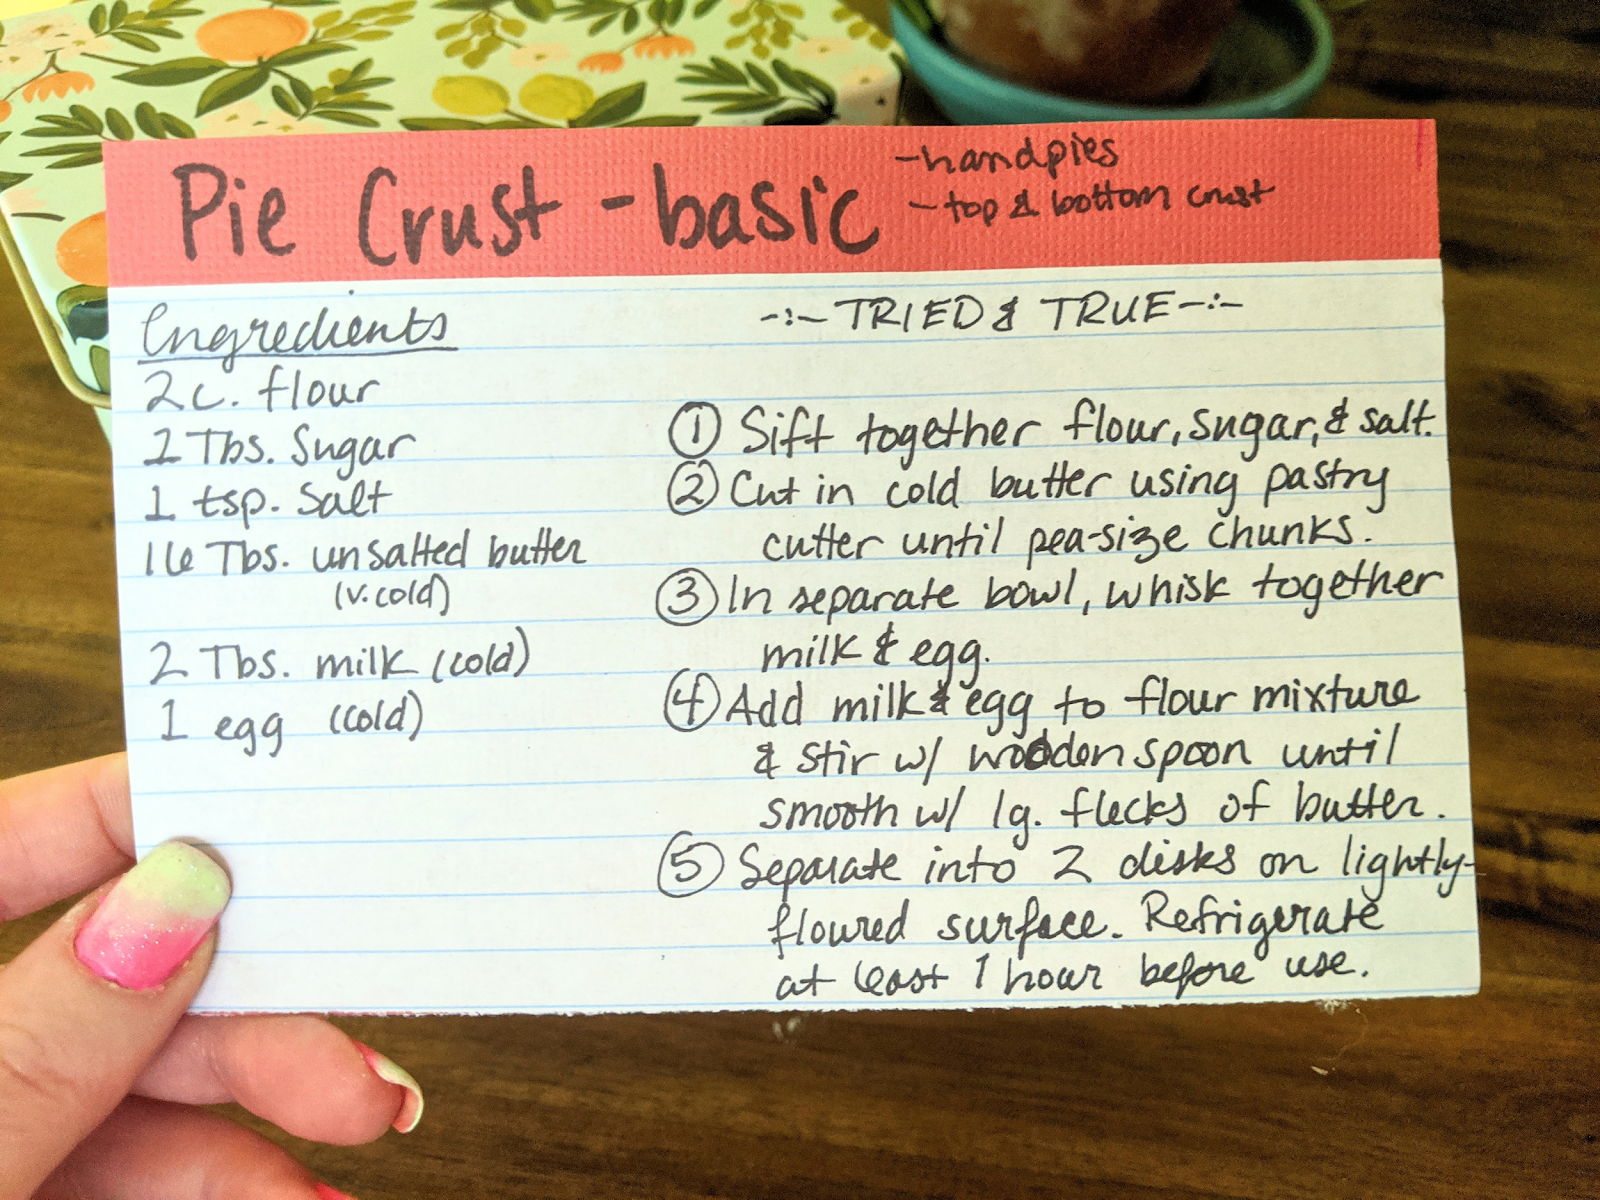 Pie Crust - basic
- handpies
- top & bottom crust
Ingredients
2 c. flour
1 Tbs. Sugar
1 tsp. Salt
16 Tbs. unsalted butter
(v. cold)
2 Tbs. milk (cold)
1 egg (cold)
-:- TRIED & TRUE -:-
① Sift together flour, sugar, & salt.
② Cut in cold butter using pastry
cutter until pea-size chunks.
③ In separate bowl, whisk together
milk & egg.
④ Add milk & egg to flour mixture
& stir w/ wooden spoon until
smooth w/ lg. flecks of butter.
⑤ Separate into 2 disks on lightly-
floured surface. Refrigerate
at least 1 hour before use.